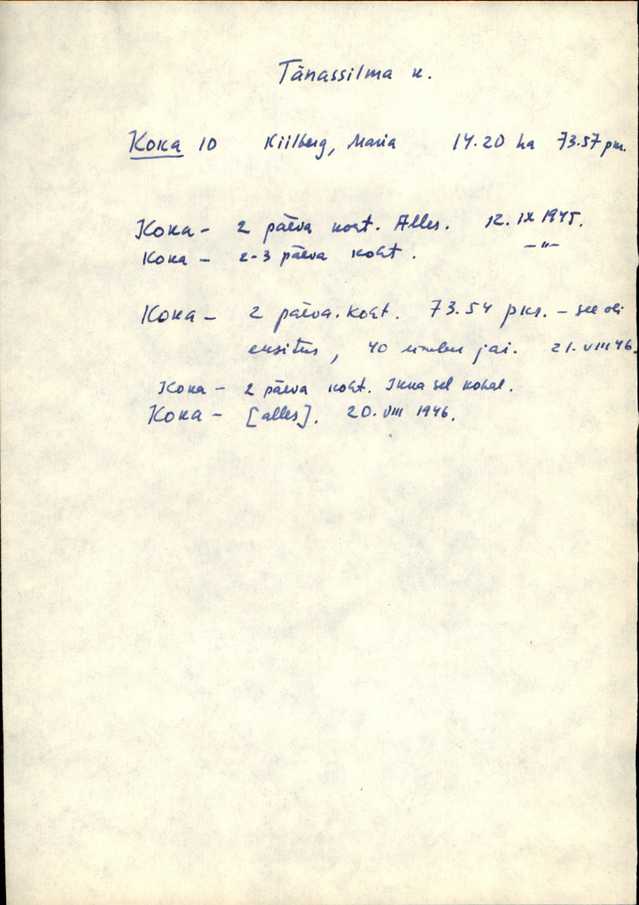 Tänassilma k.
Koka 10 Kiilberg, Maria 14.20 ha 73.57 pm.
Koka - 2 päeva koht. Alles. 12. IX 1945.
Koka - 2-3 päeva koht. -"-
Koka - 2 päeva koht. 73.54 pks. - see oli
eksitus, 40 jäi. 21. VIII 46.
Koka - 2 päeva koht. Ikka sel kohal.
Koka - [alles]. 20. VIII 1946.